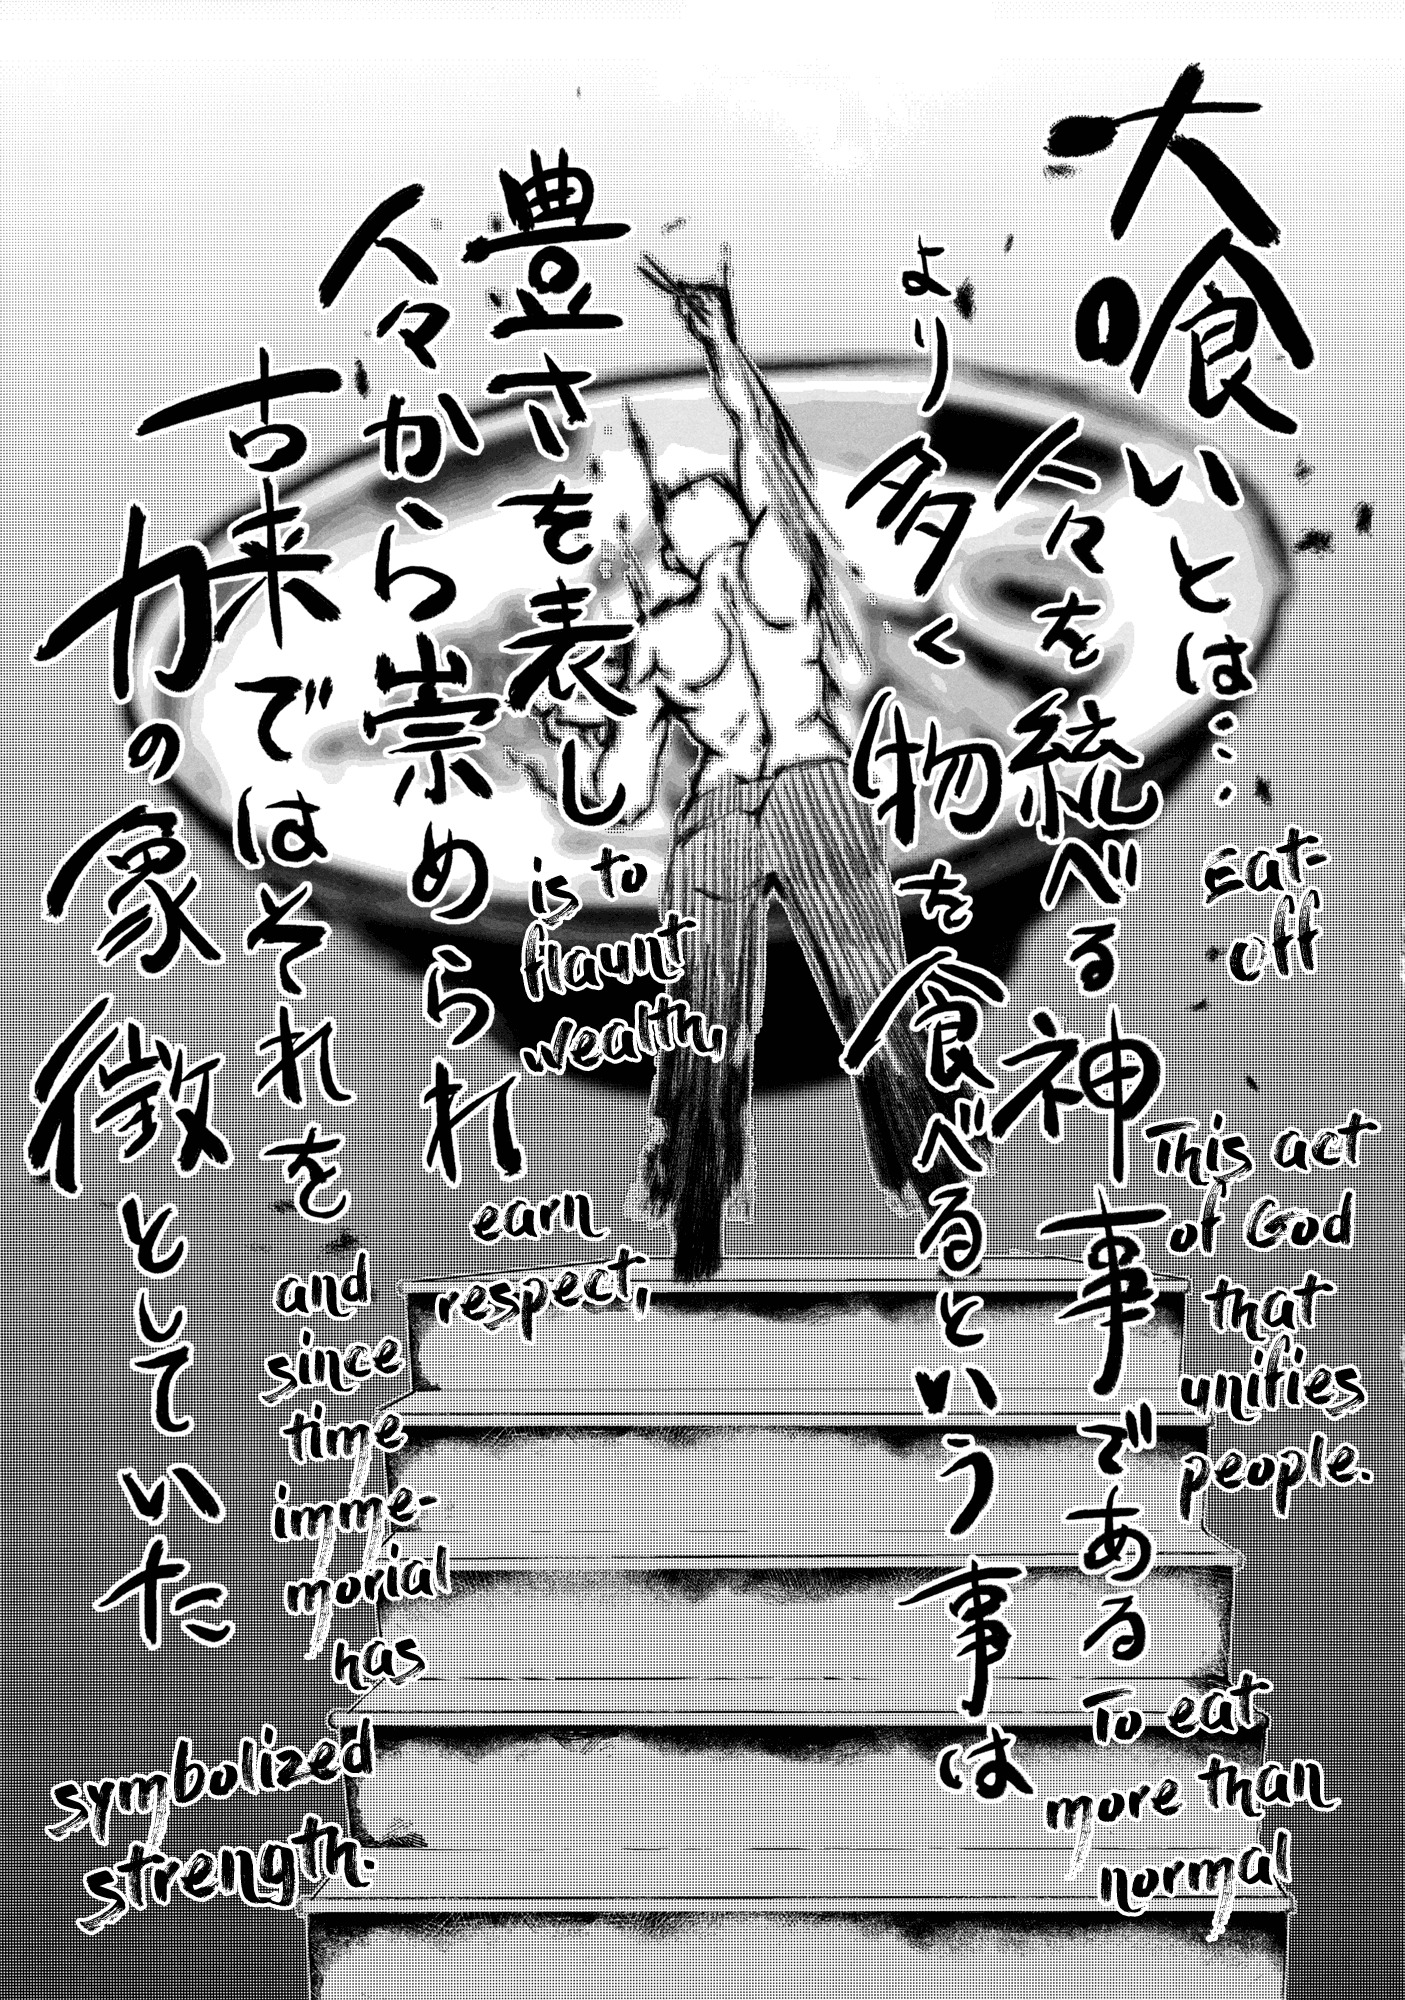 大喰いとは…
人々を統べる神事である
より多く物を食べるという事は
豊さを表し
人々から崇められ
古来ではそれを
力の象徴としていた
Eat-
off
This act
of God
that
unifies
people.
To eat
more than
normal
is to
flaunt
wealth,
earn
respect,
and
since
time
imme-
morial
has
symbolized
strength.